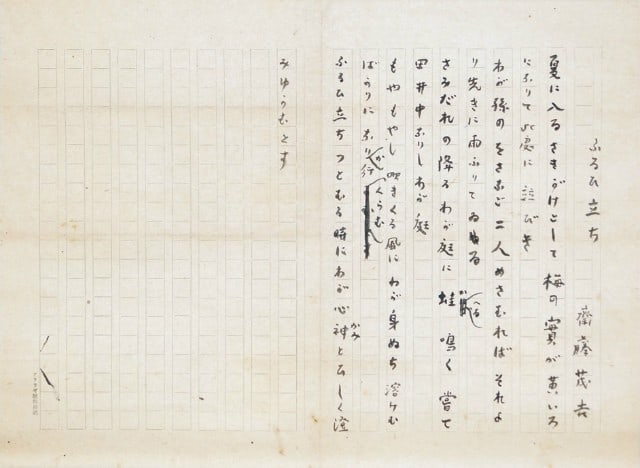 ふるひ立ち
齋藤茂吉
夏に入るさきがけとして梅の實が黄いろ
になりて此處に並びき
わが孫のをさなご二人めざむればそれよ
り先きに雨ふりてゐる
さみだれの降るわが庭に蛙鳴く嘗て
田井中なりしわが庭
もやもやし吹きくる風にわが身ぬち溶けむ
ばかりになり行くらむ
ふるひ立ちつとむる時にわが心神とひしく澄
がみ
みゆかむとす